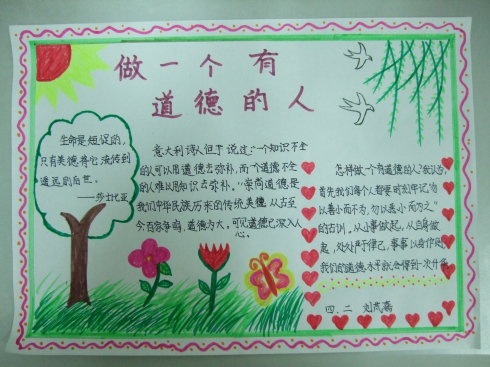 做一个有
道德的人
生命是短促的，
只有美德将它流传到
遥远的后世。
——莎士比亚
意大利诗人但丁说过：“一个知识不全
的人可以用道德去弥补，而一个道德不全
的人难以用知识去弥补。”崇尚道德，是
我们中华民族历来的传统美德，从古至
今百善争鸣，道德为大，可见道德已深入人
心。
怎样做一个有道德的人？我认为，
首先我们每个人都要时刻牢记“勿
以善小而不为，勿以恶小而为之”
的古训，从小事做起，从自身做
起，处处严于律己，事事以身作则，
我们的道德水平就会得到一次升华。
四.二 刘